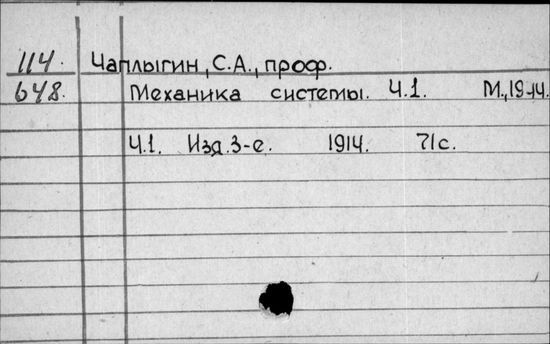 114. Чаплыгин, С.А., проф.
648. Механика системы. Ч.1. М., 1914.
Ч.1. Изд. 3-е. 1914. 71с.